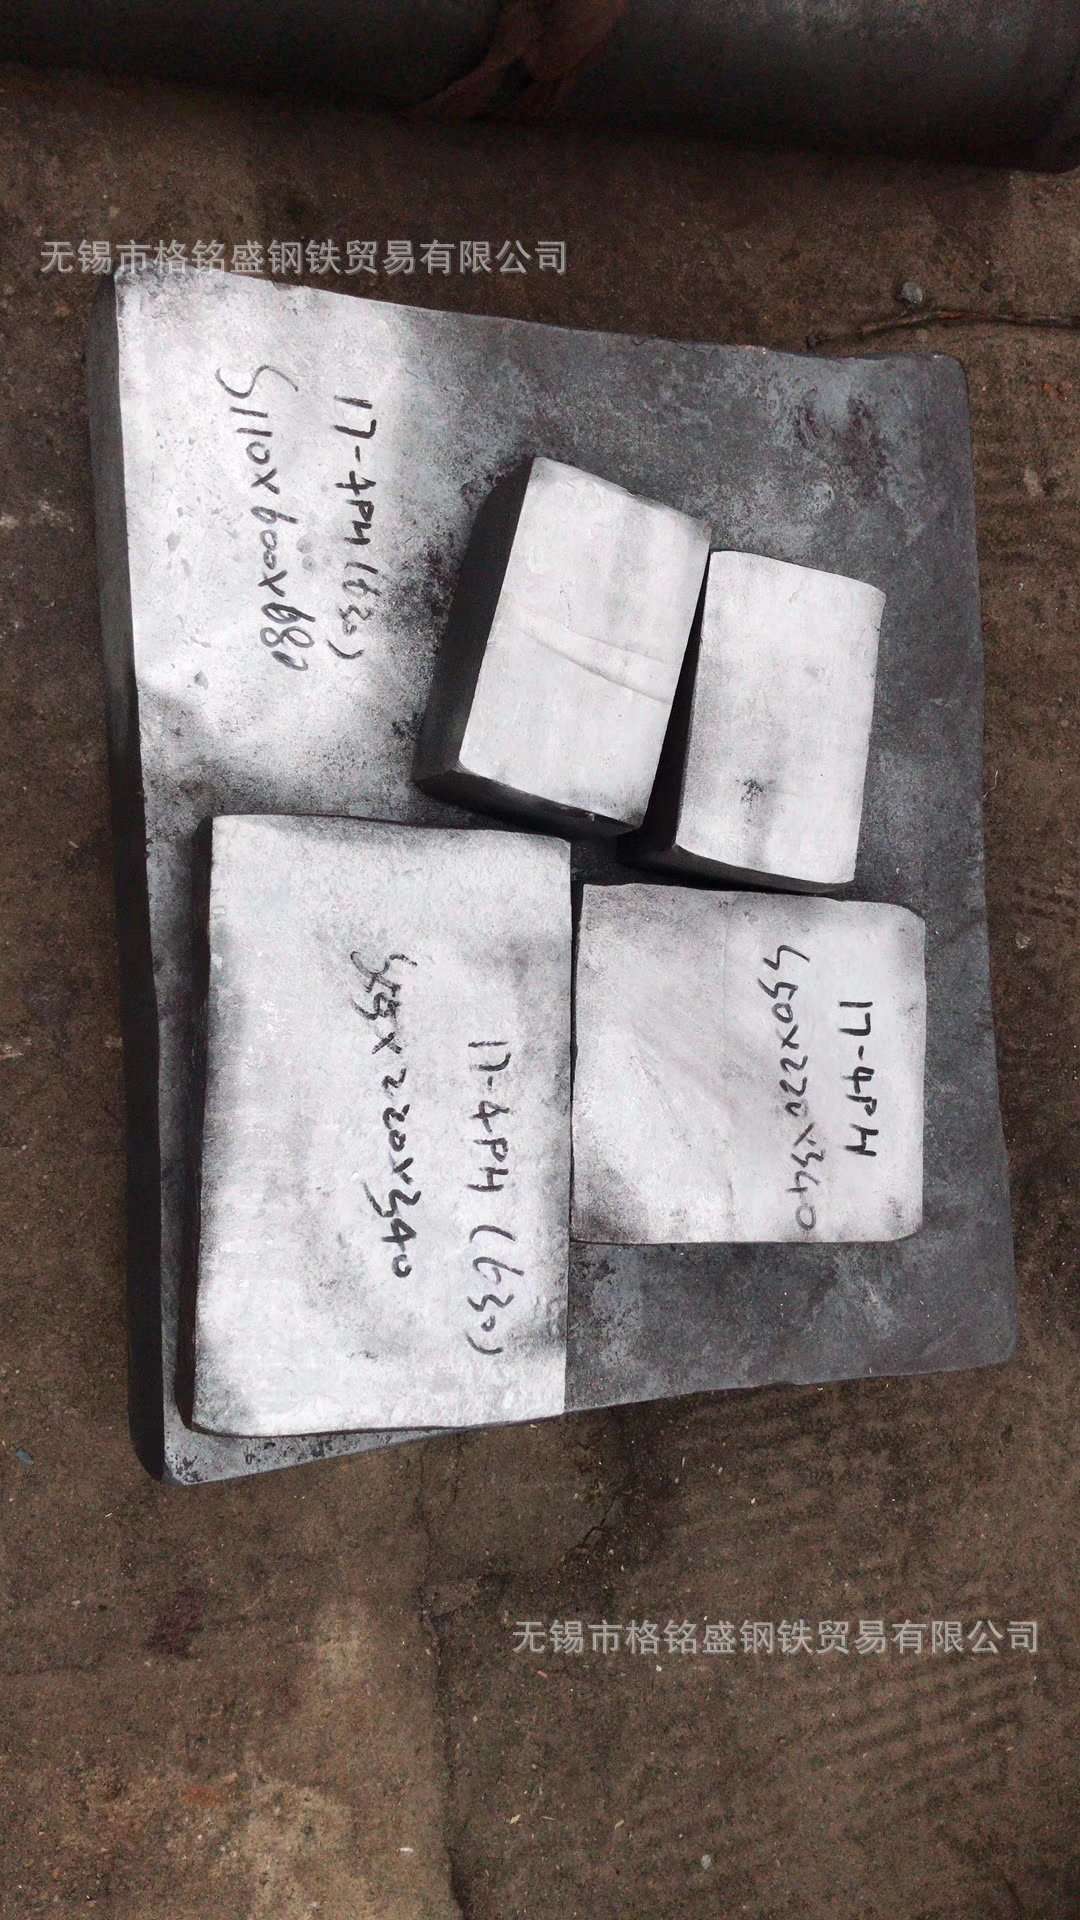 无锡市格铭盛钢铁贸易有限公司
17-4PH(630)
S110×600×680
17-4PH
S50×220×340
17-4PH(630)
S55×220×340
无锡市格铭盛钢铁贸易有限公司